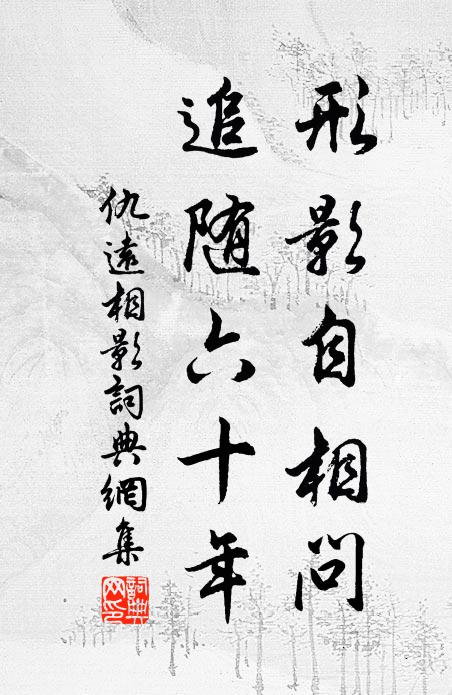 形影自相問
追随六十年
仇遠相影詞典網集
詞典網印